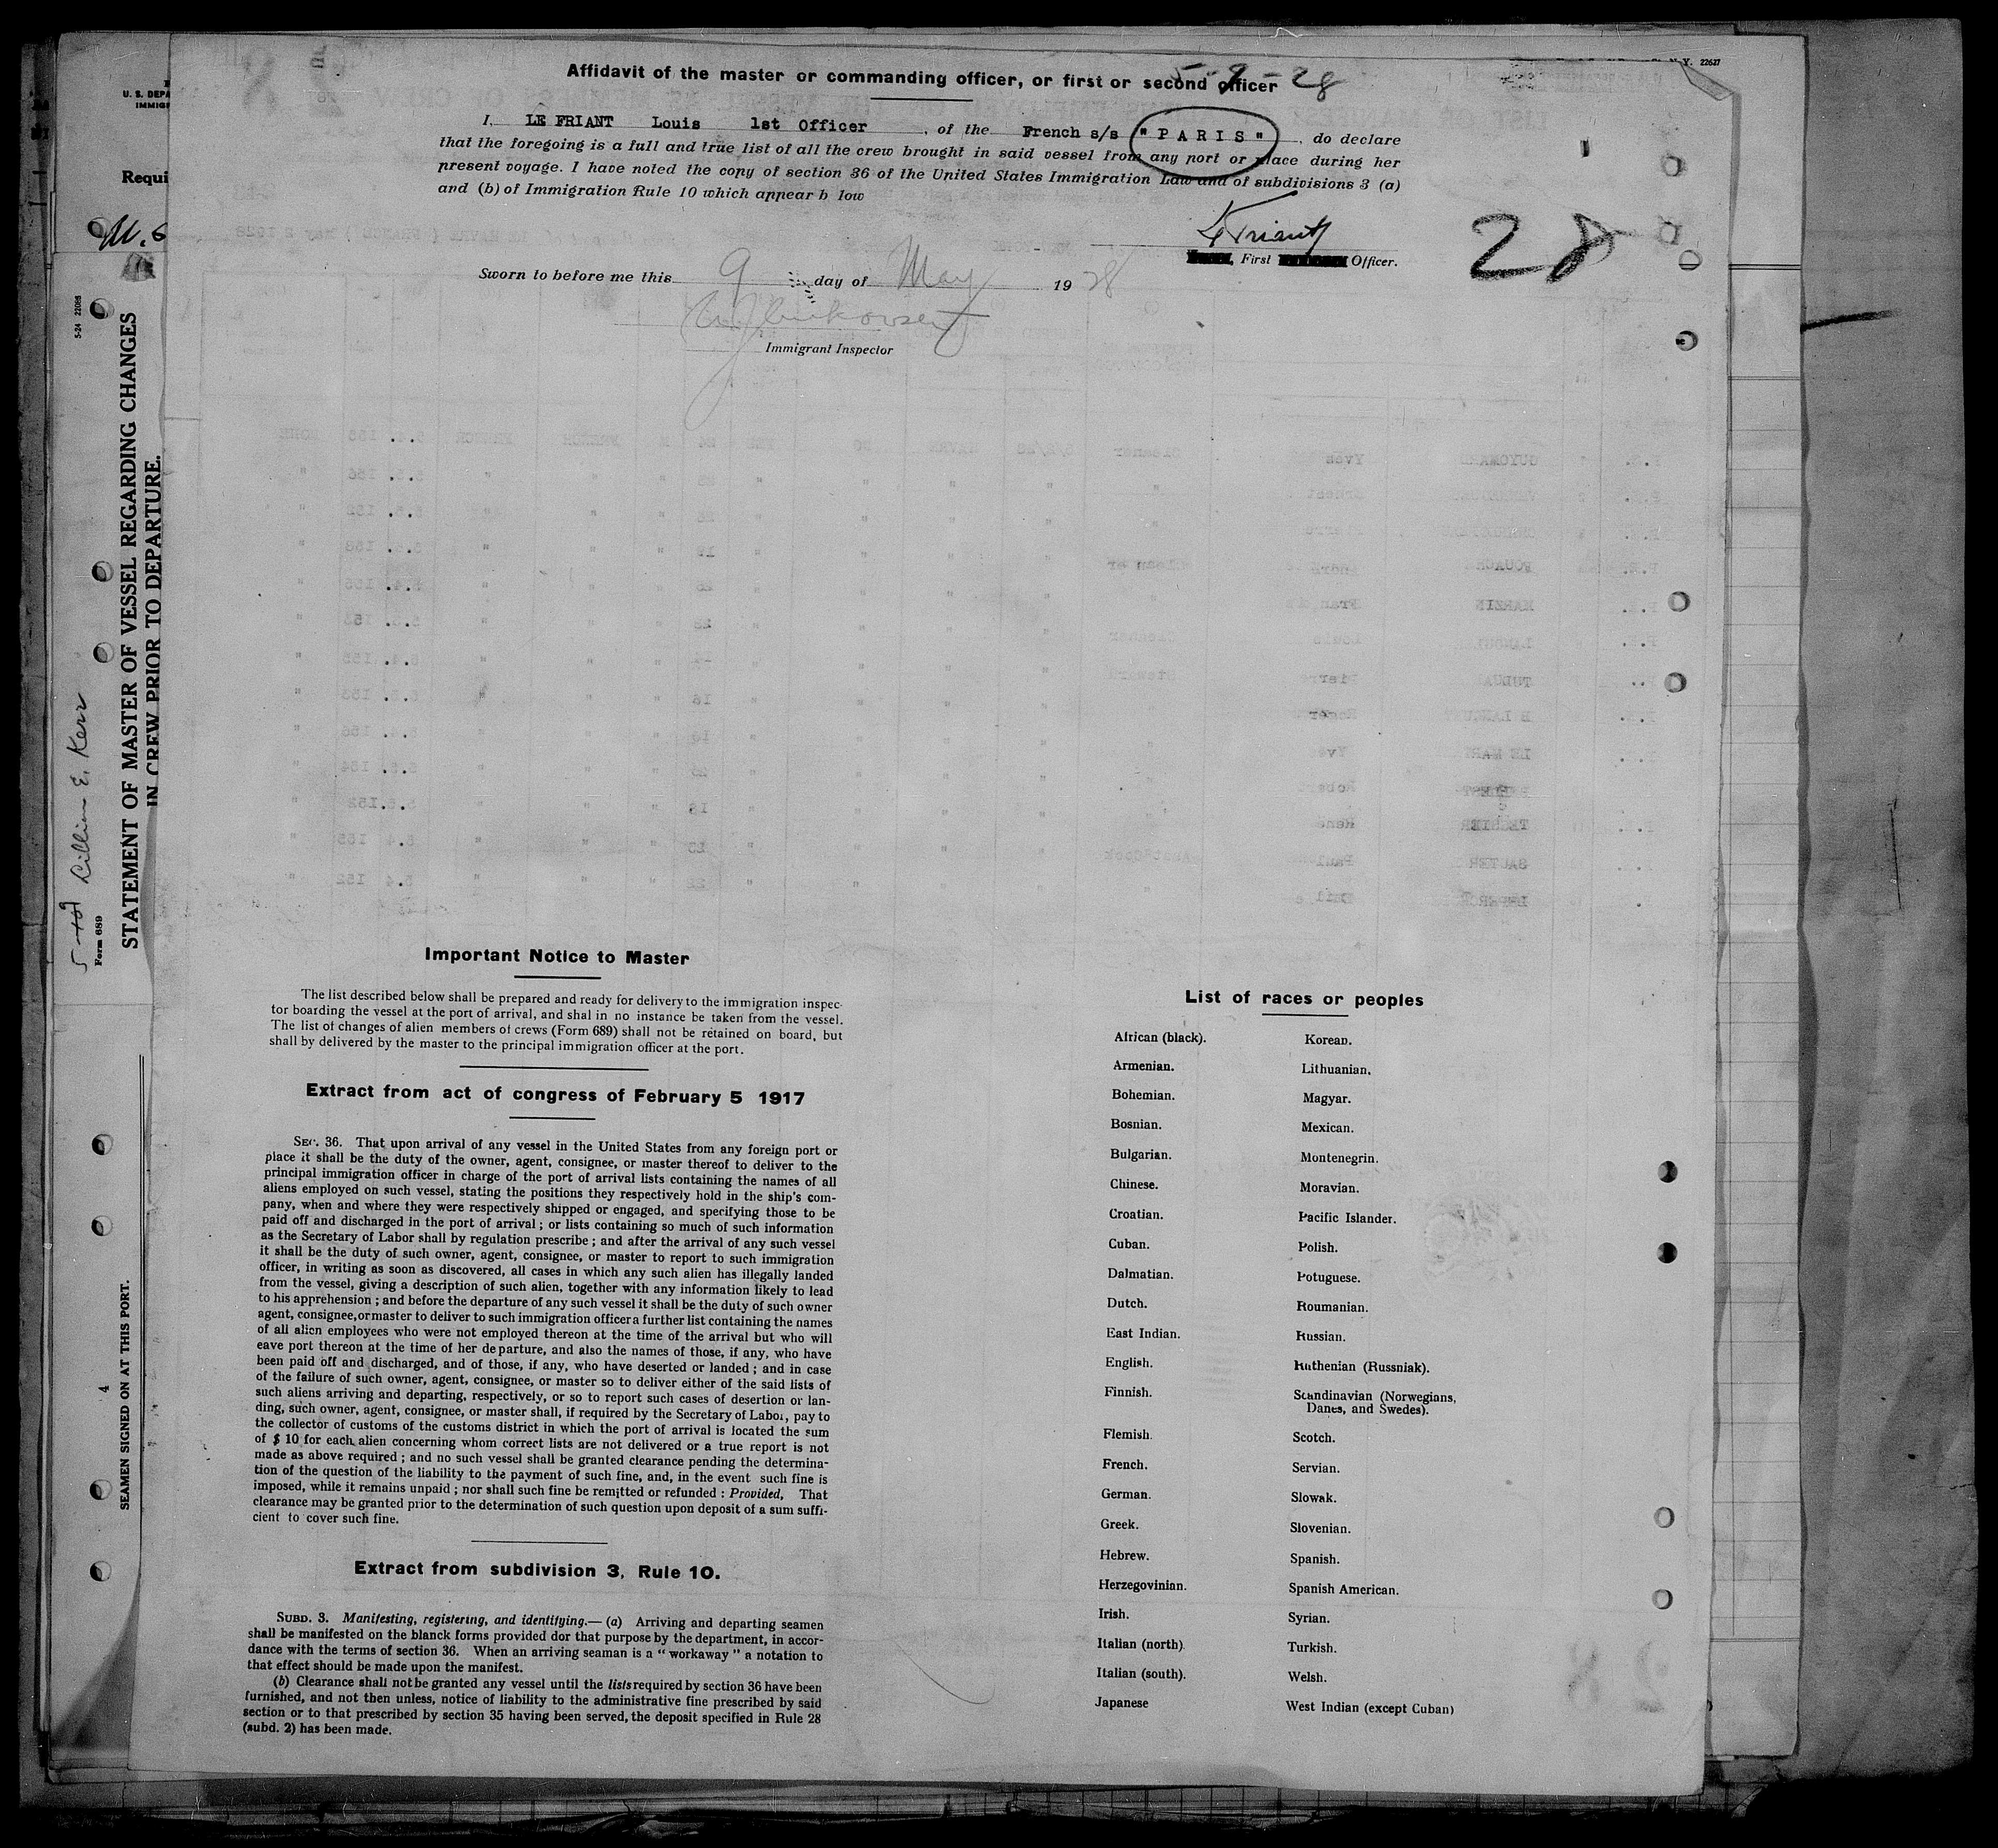 Affidavit of the master or commanding officer, or first or second officer
5-9-28
I, LE FRIANT Louis 1st Officer , of the French s/s "PARIS" , do declare
that the foregoing is a full and true list of all the crew brought in said vessel from any port or place during her
present voyage. I have noted the copy of section 36 of the United States Immigration Law and of subdivisions 3 (a)
and (b) of Immigration Rule 10 which appear b low
First Officer.
28
Sworn to before me this 9 day of May 1928
Immigrant Inspector
Important Notice to Master
The list described below shall be prepared and ready for delivery to the immigration inspec-
tor boarding the vessel at the port of arrival, and shal in no instance be taken from the vessel.
The list of changes of alien members of crews (Form 689) shall not be retained on board, but
shall by delivered by the master to the principal immigration officer at the port.
Extract from act of congress of February 5 1917
SEC. 36. That upon arrival of any vessel in the United States from any foreign port or
place it shall be the duty of the owner, agent, consignee, or master thereof to deliver to the
principal immigration officer in charge of the port of arrival lists containing the names of all
aliens employed on such vessel, stating the positions they respectively hold in the ship's com-
pany, when and where they were respectively shipped or engaged, and specifying those to be
paid off and discharged in the port of arrival ; or lists containing so much of such information
as the Secretary of Labor shall by regulation prescribe ; and after the arrival of any such vessel
it shall be the duty of such owner, agent, consignee, or master to report to such immigration
officer, in writing as soon as discovered, all cases in which any such alien has illegally landed
from the vessel, giving a description of such alien, together with any information likely to lead
to his apprehension ; and before the departure of any such vessel it shall be the duty of such owner
agent, consignee, or master to deliver to such immigration officer a further list containing the names
of all alien employees who were not employed thereon at the time of the arrival but who will
eave port thereon at the time of her departure, and also the names of those, if any, who have
been paid off and discharged, and of those, if any, who have deserted or landed ; and in case
of the failure of such owner, agent, consignee, or master so to deliver either of the said lists of
such aliens arriving and departing, respectively, or so to report such cases of desertion or lan-
ding, such owner, agent, consignee, or master shall, if required by the Secretary of Labor, pay to
the collector of customs of the customs district in which the port of arrival is located the sum
of $ 10 for each alien concerning whom correct lists are not delivered or a true report is not
made as above required ; and no such vessel shall be granted clearance pending the determina-
tion of the question of the liability to the payment of such fine, and, in the event such fine is
imposed, while it remains unpaid ; nor shall such fine be remitted or refunded : Provided, That
clearance may be granted prior to the determination of such question upon deposit of a sum suffi-
cient to cover such fine.
Extract from subdivision 3, Rule 10.
SUBD. 3. Manifesting, registering, and identifying.— (a) Arriving and departing seamen
shall be manifested on the blanck forms provided dor that purpose by the department, in accor-
dance with the terms of section 36. When an arriving seaman is a " workaway " a notation to
that effect should be made upon the manifest.
(b) Clearance shall not be granted any vessel until the lists required by section 36 have been
furnished, and not then unless, notice of liability to the administrative fine prescribed by said
section or to that prescribed by section 35 having been served, the deposit specified in Rule 28
(subd. 2) has been made.
List of races or peoples
African (black).
Armenian.
Bohemian.
Bosnian.
Bulgarian.
Chinese.
Croatian.
Cuban.
Dalmatian.
Dutch.
East Indian.
English.
Finnish.
Flemish.
French.
German.
Greek.
Hebrew.
Herzegovinian.
Irish.
Italian (north).
Italian (south).
Japanese
Korean.
Lithuanian.
Magyar.
Mexican.
Montenegrin.
Moravian.
Pacific Islander.
Polish.
Potuguese.
Roumanian.
Russian.
Ruthenian (Russniak).
Scandinavian (Norwegians,
Danes, and Swedes).
Scotch.
Servian.
Slowak.
Slovenian.
Spanish.
Spanish American.
Syrian.
Turkish.
Welsh.
West Indian (except Cuban)
U. S. DEPA
IMMIGR
Requi
5-24 22088
STATEMENT OF MASTER OF VESSEL REGARDING CHANGES
IN CREW PRIOR TO DEPARTURE.
Form 689
Lillian E. Kerr
4
SEAMEN SIGNED ON AT THIS PORT.
N.Y. 22627